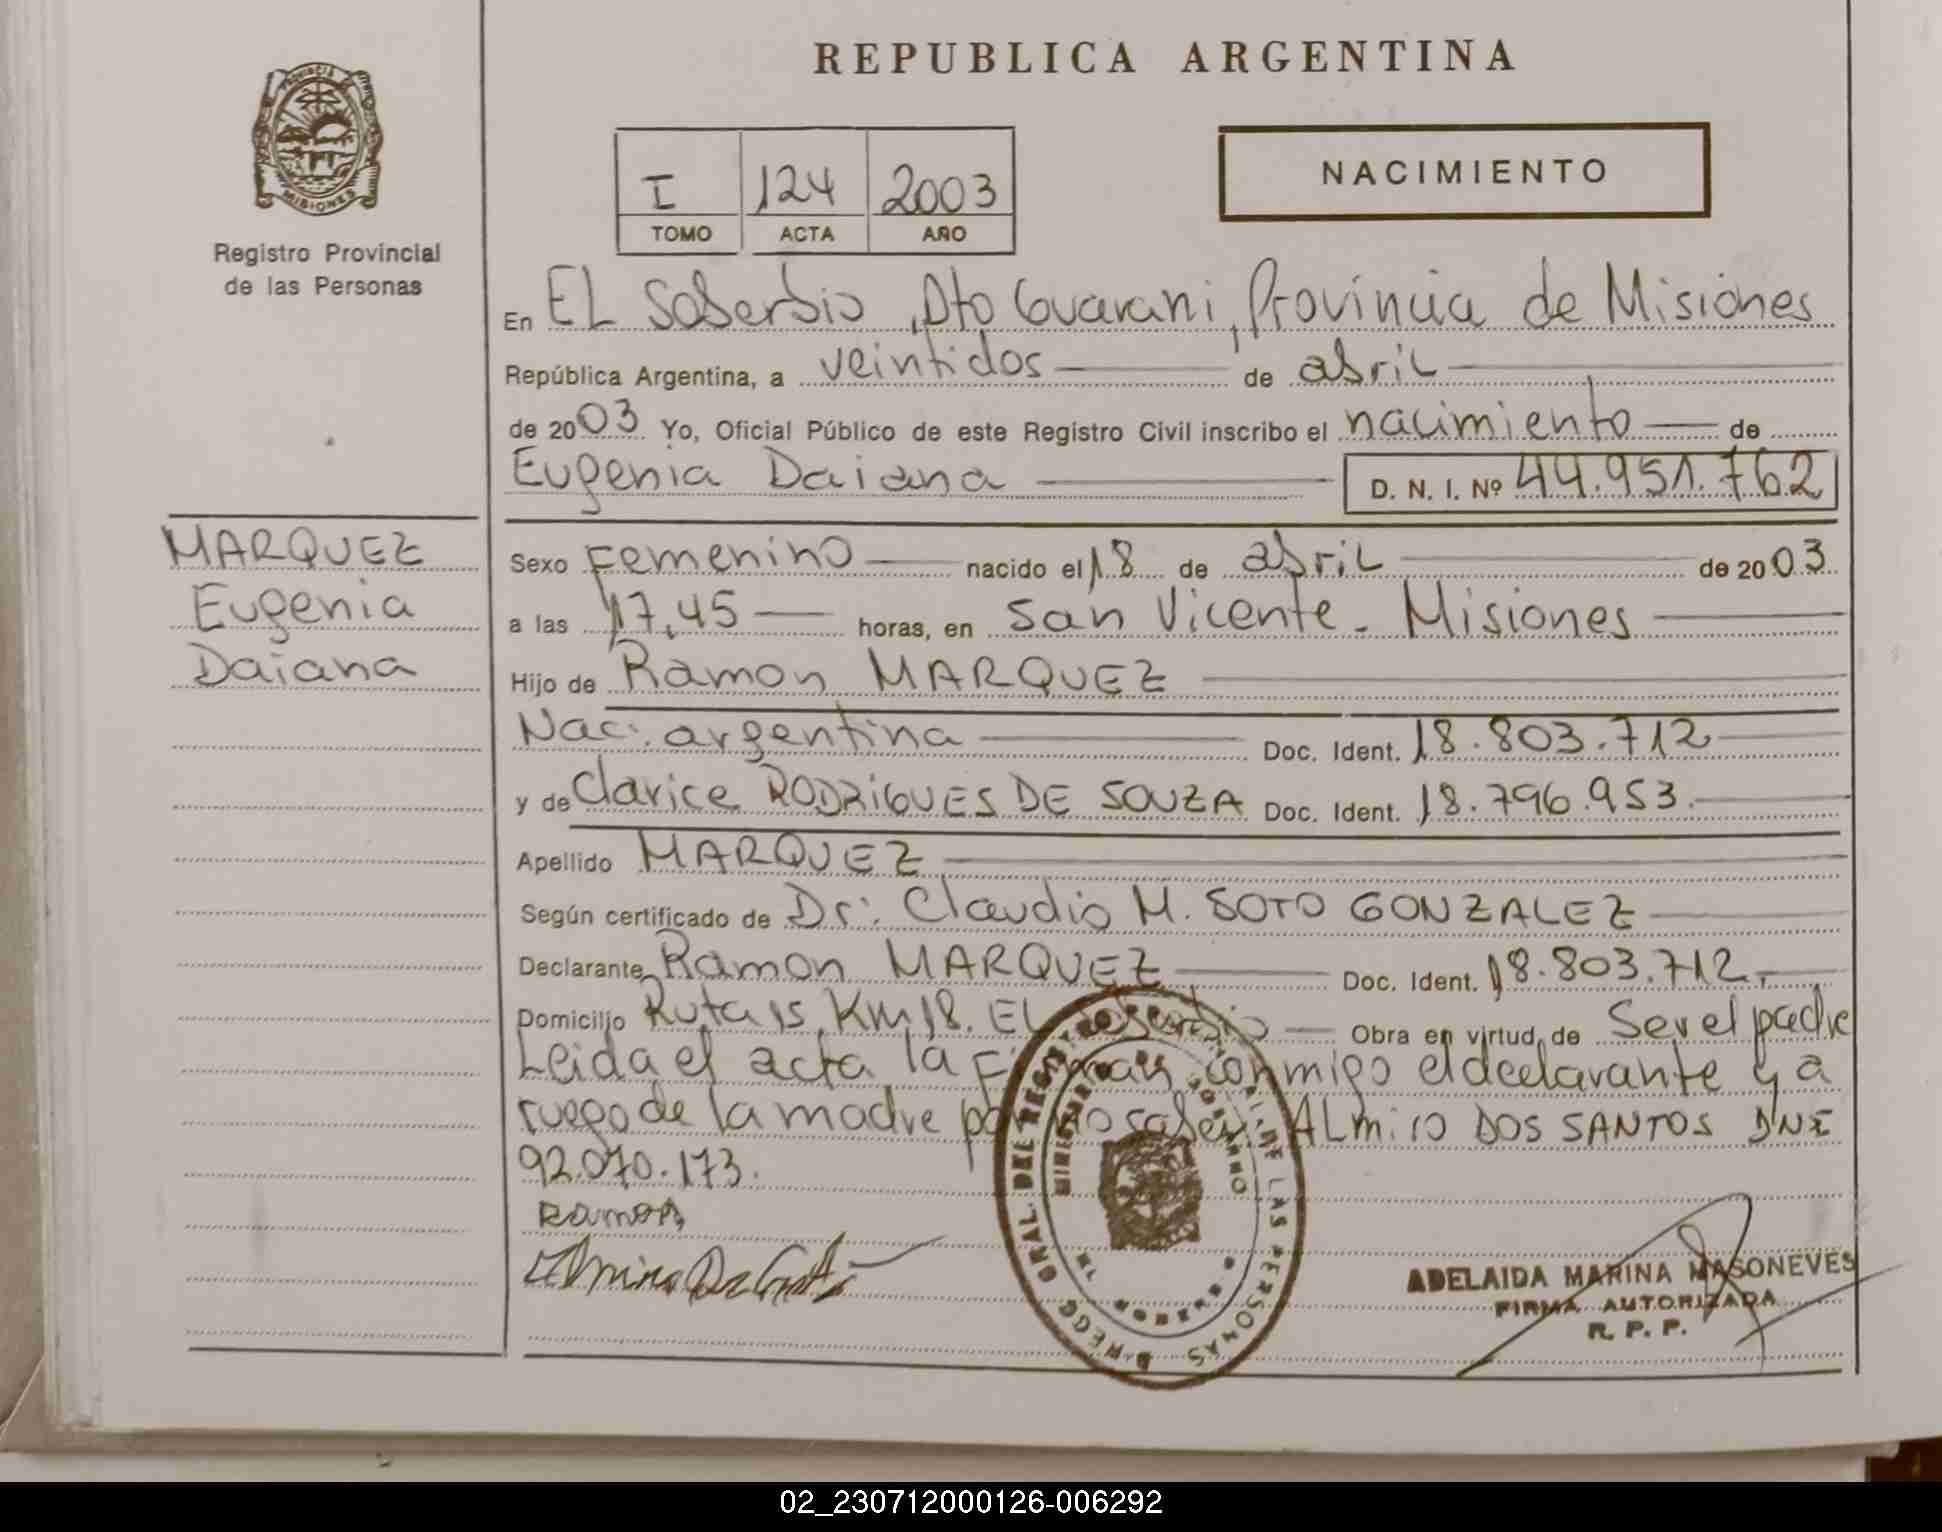 REPUBLICA ARGENTINA
PROVINCIA DE MISIONES
Registro Provincial
de las Personas
I 124 2003
TOMO ACTA AÑO
NACIMIENTO
En EL Soberbio, Dto Guarani, Provincia de Misiones
República Argentina, a veintidos de abril
de 2003 Yo, Oficial Público de este Registro Civil inscribo el nacimiento de
Eugenia Daiana D. N. I. Nº 44.951.762
MARQUEZ
Eugenia
Daiana
Sexo Femenino nacido el 18 de abril de 2003
a las 17,45 horas, en San Vicente - Misiones
Hijo de Ramon MARQUEZ
Nac: argentina Doc. Ident. 18.803.712
y de Clarice RODRIGUES DE SOUZA Doc. Ident. 18.796.953.
Apellido MARQUEZ
Según certificado de Dr: Claudio M. SOTO GONZALEZ
Declarante Ramon MARQUEZ Doc. Ident. 18.803.712.
Domicilio Ruta 15, Km 18. EL Soberbio Obra en virtud de Ser el padre
Leida el acta la Firman conmigo el declarante y a
ruego de la madre por no saber: ALmiro DOS SANTOS DNI
92.070.173.
Ramon
ADELAIDA MARINA MASONEVES
FIRMA AUTORIZADA
R. P. P.
GRAL. DEL REGISTRO PROVINCIAL DE LAS PERSONAS
MINISTERIO DE GOBIERNO
02_230712000126-006292